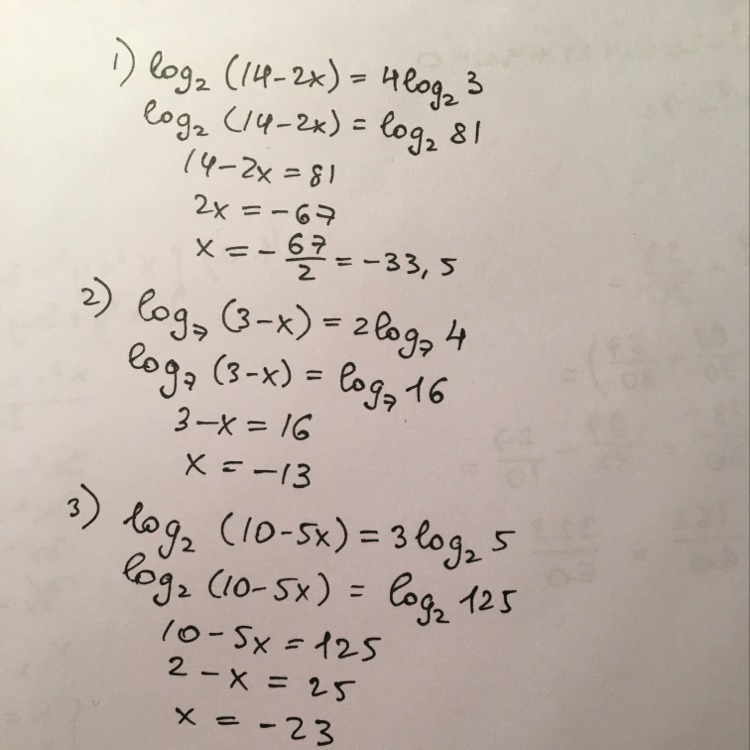 1) log₂ (14-2x) = 4log₂ 3
log₂ (14-2x) = log₂ 81
14-2x = 81
2x = -67
x = - 67/2 = -33,5
2) log₇ (3-x) = 2log₇ 4
log₇ (3-x) = log₇ 16
3-x = 16
x = -13
3) log₂ (10-5x) = 3log₂ 5
log₂ (10-5x) = log₂ 125
10-5x = 125
2-x = 25
x = -23